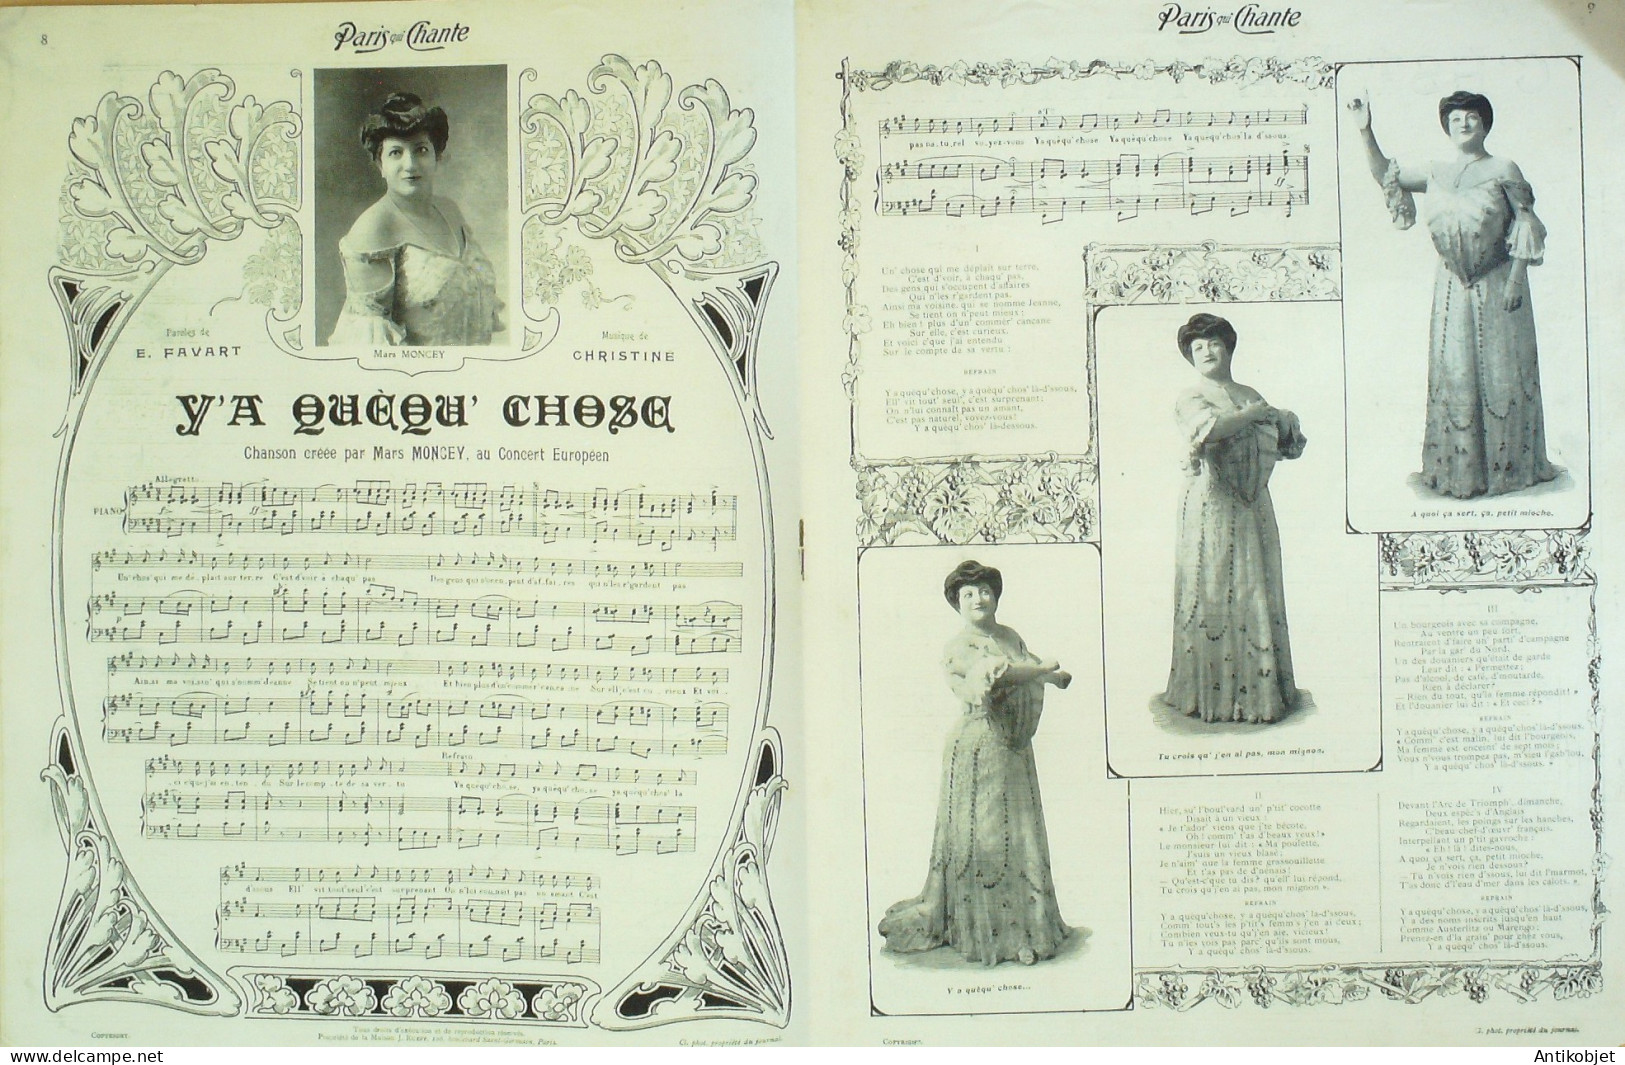 8
Paris qui Chante
Paroles de
E. FAVART
Mars MONCEY
Musique de
CHRISTINE
Y'A QUÈQU' CHOSE
Chanson créée par Mars MONCEY, au Concert Européen
PIANO
Refrain
COPYRIGHT.
Tous droits d'exécution et de reproduction réservés.
Cl. phot. propriété du journal.
Paris qui Chante
9
pas na.tu.rel voy.ez-vous Ya quèqu' chose Ya quèqu' chose Ya quèqu' chos' la d'ssous.
I
Un' chose qui me déplaît sur terre,
C'est d'voir, à chaqu' pas,
Des gens qui s'occupent d'affaires
Qui n'les r'gardent pas.
Ainsi ma voisine, qui se nomme Jeanne,
Se tient on n'peut mieux ;
Eh bien ! plus d'un' commèr' cancane
Sur elle, c'est curieux.
Et voici c'que j'ai entendu
Sur le compte de sa vertu :
REFRAIN
Y a quèqu'chose, y a quèqu' chos' là-d'ssous,
Ell' vit tout' seul', c'est surprenant ;
On n'lui connaît pas un amant,
C'est pas naturel, voyez-vous!
Y a quèqu' chos' là-dessous.
A quoi ça sert, ça, petit mioche.
Tu crois qu' j'en ai pas, mon mignon.
Y a quèqu' chose...
II
Hier, su' l'boul'vard un' p'tit' cocotte
Disait à un vieux :
« Je t'ador' viens que j'te bécote,
Oh ! comm' t'as d'beaux yeux! »
Le monsieur lui dit : « Ma poulette,
J'suis un vieux blasé ;
Je n'aim' que la femme grassouillette
Et t'as pas de d'nénais!
— Qu'est-c'que tu dis? qu'ell' lui répond,
Tu crois qu'j'en ai pas, mon mignon ».
REFRAIN
Y a quèqu'chose, y a quèqu' chos' là-d'ssous,
Comm' tout's les p'tit's femm's j'en ai deux;
Combien veux-tu qu'j'en aie, vicieux!
Tu n'les vois pas parc' qu'ils sont mous,
Y a quèqu' chos' là-d'ssous.
III
Un bourgeois avec sa compagne,
Au ventre un peu fort,
Rentraient d'faire un' parti' d'campagne
Par la gar' du Nord.
Un des douaniers qu'était de garde
Leur dit : « Permettez ;
Pas d'alcool, de café, d'moutarde,
Rien à déclarer?
— Rien du tout, qu'la femme répondit! »
Et l'douanier lui dit : « Et ceci? »
REFRAIN
Y a quèqu'chose, y a quèqu'chos' là-d'ssous.
« Comm' c'est malin, lui dit l'bourgeois,
Ma femme est enceint' de sept mois ;
Vous n'vous trompez pas, m'sieu l'gab'lou,
Y a quèqu' chos' là-d'ssous. »
IV
Devant l'Arc de Triomph', dimanche,
Deux espèc's d'Anglais
Regardaient, les poings sur les hanches,
C'beau chef-d'œuvr' français.
Interpellant un p'tit gavroche :
« Eh ! là ! dites-nous,
A quoi ça sert, ça, petit mioche,
Je n'vois rien dessous?
— Tu n'vois rien d'ssous, lui dit l'marmot,
T'as donc d'l'eau d'mer dans les calots. »
REFRAIN
Y a quèqu' chose, y a quèqu' chos' là-d'ssous,
Y a des noms inscrits jusqu'en haut
Comme Austerlitz ou Marengo ;
Prenez-en d'la grain' pour chez vous,
Y a quèqu' chos' là-d'ssous.
COPYRIGHT.
Cl. phot. propriété du journal.
Antikobjet